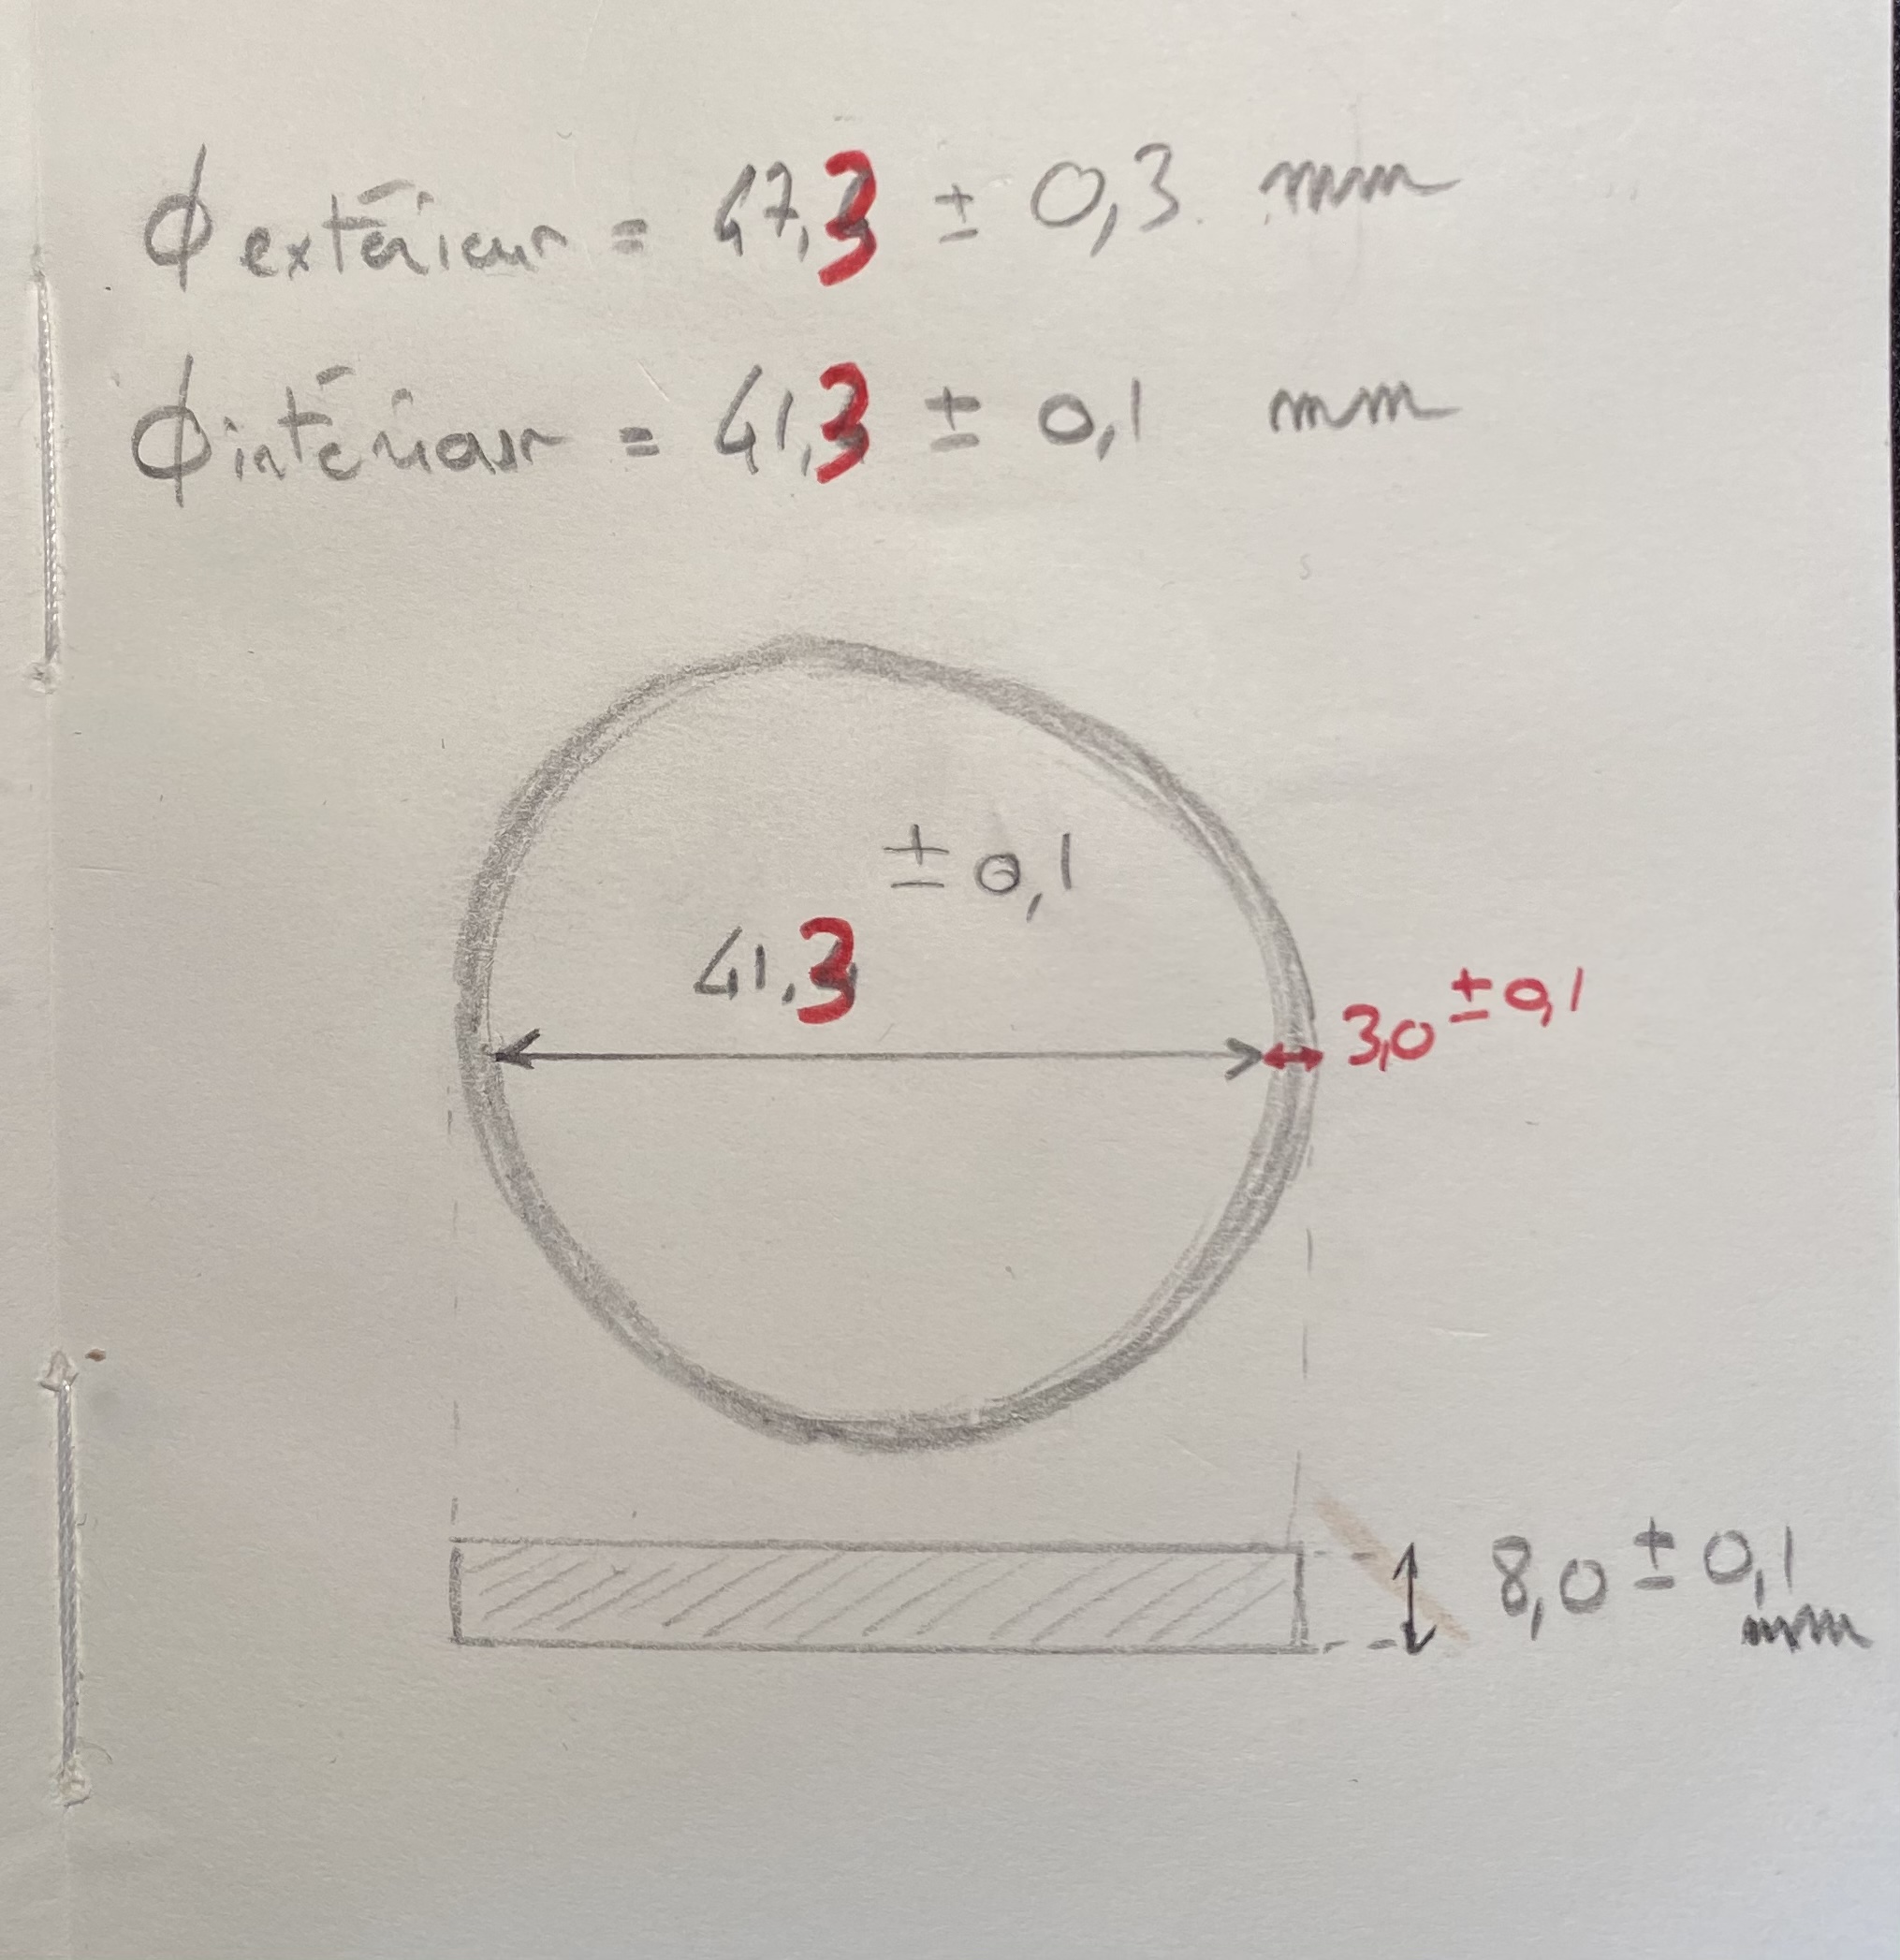 ϕ extérieur = 47,3 ± 0,3 mm
ϕ intérieur = 41,3 ± 0,1 mm
± 0,1
41,3
3,0 ± 0,1
8,0 ± 0,1
mm